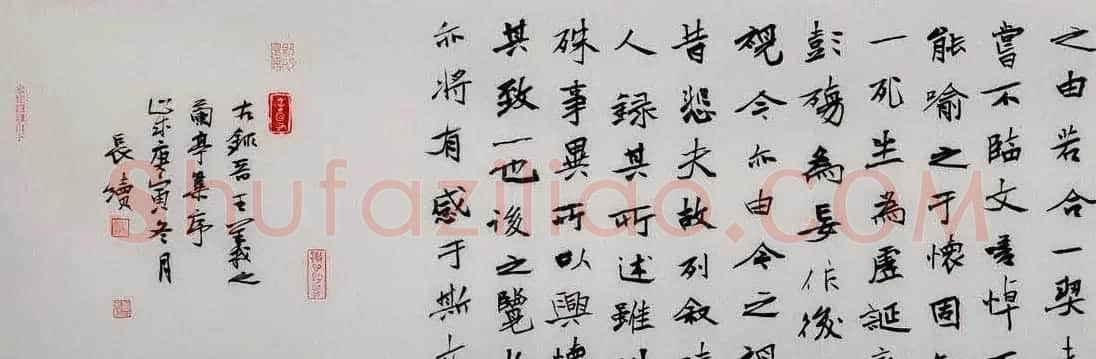 之由若合一契
嘗不臨文嗟悼
能喻之于懷固
一死生為虛誕
彭殤為妄作後
視今亦由今之視
昔悲夫故列叙
人録其所述雖
殊事異所以興懷
其致一也後之覽
亦将有感于斯文
右録晋王羲之
蘭亭集序
歲庚寅冬月
長續
Shufaziliao.COM